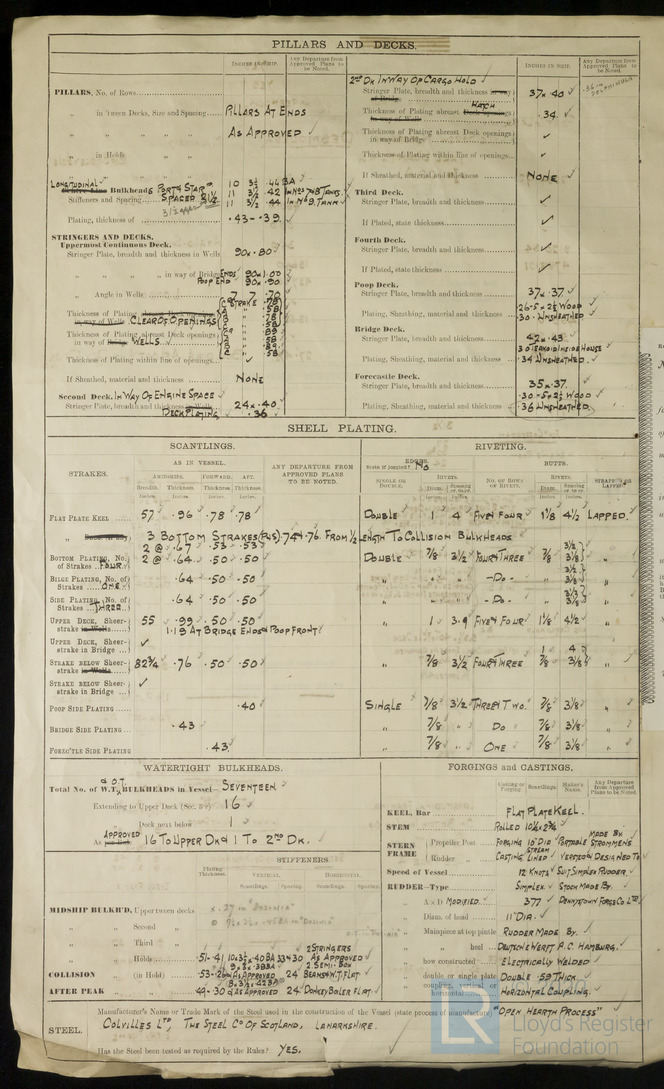 PILLARS AND DECKS.
INCHES IN SHIP.
Any Departure from Approved Plans to be Noted.
PILLARS, No. of Rows
in 'tween Decks, Size and Spacing PILLARS AT ENDS
AS APPROVED
in Holds
LONGITUDINAL Bulkheads PORT & STARD 10 3½ .44 BA
Stiffeners and Spacing SPACED 31½ 11 3½ .42 IN NOS 7&8 TANKS
11 3½ .44 IN NO 9. TANK
Plating, thickness of .43-.39.
STRINGERS AND DECKS.
Uppermost Continuous Deck.
Stringer Plate, breadth and thickness in Wells 90 x .80
in way of Bridge ENDS 90 x 1.00
POOP END 90 x .90
Angle in Wells 7 7 .70
Thickness of Plating
in way of Wells CLEAR OF OPENINGS
Thickness of Plating abreast Deck openings
in way of WELLS
Thickness of Plating within line of openings
If Sheathed, material and thickness NONE
Second Deck. IN WAY OF ENGINE SPACE
Stringer Plate, breadth and thickness in Wells 24 x .40
DECK PLATING .36
2ND DK IN WAY OF CARGO HOLD
Stringer Plate, breadth and thickness 37 x .40
Thickness of Plating abreast HATCH .34
Thickness of Plating abreast Deck openings in way of Bridge
Thickness of Plating within line of openings
If Sheathed, material and thickness NONE
Third Deck.
Stringer Plate, breadth and thickness
If Plated, state thickness
Fourth Deck.
Stringer Plate, breadth and thickness
If Plated, state thickness
Poop Deck.
Stringer Plate, breadth and thickness 37 x .37
.26-5 x 2½ WOOD
Plating, Sheathing, material and thickness .30 UNSHEATHED
Bridge Deck.
Stringer Plate, breadth and thickness 42 x .43
Plating, Sheathing, material and thickness .34 UNSHEATHED.
Forecastle Deck.
Stringer Plate, breadth and thickness 35 x .37.
.30 -5 x 2½ WOOD
Plating, Sheathing, material and thickness .36 UNSHEATHED
SHELL PLATING.
SCANTLINGS.
RIVETING.
STRAKES.
AS IN VESSEL.
AMIDSHIPS. FORWARD. AFT.
Breadth. Thickness. Thickness. Thickness.
ANY DEPARTURE FROM APPROVED PLANS TO BE NOTED.
EDGES.
State if joggled? NO
BUTTS.
SINGLE OR DOUBLE.
RIVETS.
NO. OF ROWS OF RIVETS.
STRAPPED OR LAPPED.
FLAT PLATE KEEL 57 .96 .78 .78 DOUBLE 1 4 FIVE & FOUR 1⅛ 4½ LAPPED.
3 BOTTOM STRAKES (P&S) .74 & .76 FROM ½ LENGTH TO COLLISION BULKHEADS
2 @ .67 .53 .53
BOTTOM PLATING, No. of Strakes FOUR 2 @ .64 .50 .50 DOUBLE ⅞ 3½ FOUR & THREE ⅞ 3½ 3⅛
BILGE PLATING, No. of Strakes ONE .64 .50 .50 " " " -DO- " 3½ 3⅛
SIDE PLATING, No. of Strakes THREE .64 .50 .50 " " " -DO- " 3½ 3⅛
UPPER DECK, Sheerstrake in Wells 55 .99 .50 .50 " 1 3.9 FIVE & FOUR 1⅛ 4½ "
1.19 AT BRIDGE ENDS & POOP FRONT
UPPER DECK, Sheerstrake in Bridge
STRAKE BELOW Sheerstrake in Wells 82¾ .76 .50 .50 " ⅞ 3½ FOUR & THREE 1 4 ⅞ 3⅛ "
STRAKE BELOW Sheerstrake in Bridge
POOP SIDE PLATING .40 SINGLE ⅞ 3½ THREE & TWO. ⅞ 3⅛ "
BRIDGE SIDE PLATING .43 " ⅞ " DO ⅞ 3⅛ "
FOREC'TLE SIDE PLATING .43 " ⅞ " ONE ⅞ 3⅛ "
WATERTIGHT BULKHEADS.
Total No. of W.T. & O.T. BULKHEADS in Vessel SEVENTEEN
Extending to Upper Deck 16
Deck next below 1
As APPROVED 16 TO UPPER DK & 1 TO 2ND DK.
STIFFENERS.
Plating Thickness.
VERTICAL. HORIZONTAL.
Scantlings. Spacing. Scantlings. Spacing.
MIDSHIP BULKH'D, Upper tween decks
" Second "
" Third "
2 STRINGERS
" Holds .51-.41 10 x 3½ .40 BA 33 & 30 AS APPROVED
COLLISION (in Hold) .53-.26 AS APPROVED 24 BEAMS & W.T. FLAT
AFTER PEAK .44-.30 AS APPROVED 24 DONKEY BOILER FLAT.
FORGINGS and CASTINGS.
Casting or Forging. Scantlings. Maker's Name. Any Departure from Approved Plans to be Noted.
KEEL, Bar FLAT PLATE KEEL.
STEM ROLLED 10½ x 2¾
MADE BY
STERN FRAME Propeller Post FORGING 10" DIA
Rudder " CASTING STREAM LINED
Speed of Vessel 12 KNOTS SUIT SIMPLEX RUDDER.
RUDDER—Type SIMPLEX. STOCK MADE BY.
" A x D MODIFIED. 377 DENNYSTOWN FORGE CO LTD
" Diam. of head 11" DIA.
" Mainpiece at top pintle RUDDER MADE BY.
" " heel DEUTSCHE WERFT A.G. HAMBURG.
" how constructed ELECTRICALLY WELDED
" double or single plate DOUBLE .59 THICK
" coupling, vertical or horizontal HORIZONTAL COUPLING.
STEEL. Manufacturer's Name or Trade Mark of the Steel used in the construction of the Vessel (state process of manufacture) "OPEN HEARTH PROCESS"
COLVILLES LTD, THE STEEL CO OF SCOTLAND, LANARKSHIRE.
Has the Steel been tested as required by the Rules? YES.
LR
Lloyd's Register
Foundation